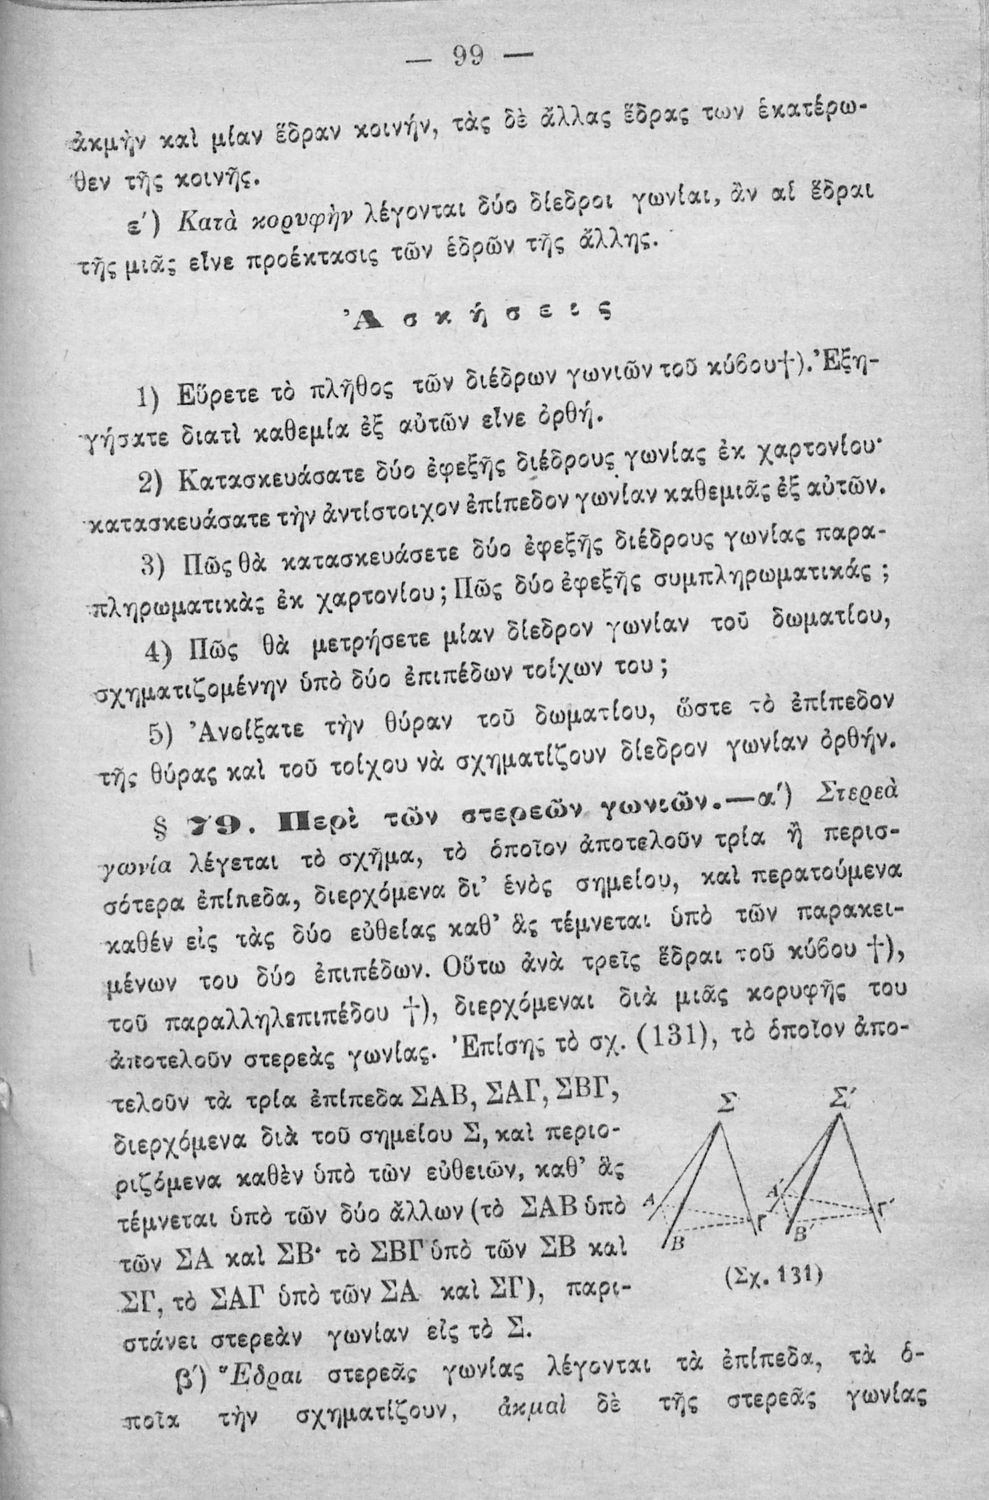 — 99 —
ἀκμὴν καὶ μίαν ἕδραν κοινήν, τὰς δὲ ἄλλας ἕδρας των ἑκατέρω-
θεν τῆς κοινῆς.
ε′) Κατὰ κορυφὴν λέγονται δύο δίεδροι γωνίαι, ἂν αἱ ἕδραι
τῆς μιᾶς εἶνε προέκτασις τῶν ἑδρῶν τῆς ἄλλης.
Ἀσκήσεις
1) Εὕρετε τὸ πλῆθος τῶν διέδρων γωνιῶν τοῦ κύβου†). Ἐξη-
γήσατε διατὶ καθεμία ἐξ αὐτῶν εἶνε ὀρθή.
2) Κατασκευάσατε δύο ἐφεξῆς διέδρους γωνίας ἐκ χαρτονίου·
κατασκευάσατε τὴν ἀντίστοιχον ἐπίπεδον γωνίαν καθεμιᾶς ἐξ αὐτῶν.
3) Πῶς θὰ κατασκευάσετε δύο ἐφεξῆς διέδρους γωνίας παρα-
πληρωματικὰς ἐκ χαρτονίου; Πῶς δύο ἐφεξῆς συμπληρωματικάς;
4) Πῶς θὰ μετρήσετε μίαν δίεδρον γωνίαν τοῦ δωματίου,
σχηματιζομένην ὑπὸ δύο ἐπιπέδων τοίχων του;
5) Ἀνοίξατε τὴν θύραν τοῦ δωματίου, ὥστε τὸ ἐπίπεδον
τῆς θύρας καὶ τοῦ τοίχου νὰ σχηματίζουν δίεδρον γωνίαν ὀρθήν.
§ 79. Περὶ τῶν στερεῶν γωνιῶν.—α′) Στερεὰ
γωνία λέγεται τὸ σχῆμα, τὸ ὁποῖον ἀποτελοῦν τρία ἢ περισ-
σότερα ἐπίπεδα, διερχόμενα δι’ ἑνὸς σημείου, καὶ περατούμενα
καθέν εἰς τὰς δύο εὐθείας καθ’ ἃς τέμνεται ὑπὸ τῶν παρακει-
μένων του δύο ἐπιπέδων. Οὕτω ἀνὰ τρεῖς ἕδραι τοῦ κύβου †),
τοῦ παραλληλεπιπέδου †), διερχόμεναι διὰ μιᾶς κορυφῆς του
ἀποτελοῦν στερεὰς γωνίας. Ἐπίσης τὸ σχ. (131), τὸ ὁποῖον ἀπο-
τελοῦν τὰ τρία ἐπίπεδα ΣΑΒ, ΣΑΓ, ΣΒΓ,
διερχόμενα διὰ τοῦ σημείου Σ, καὶ περιο-
ριζόμενα καθὲν ὑπὸ τῶν εὐθειῶν, καθ’ ἃς
τέμνεται ὑπὸ τῶν δύο ἄλλων (τὸ ΣΑΒ ὑπὸ
τῶν ΣΑ καὶ ΣΒ· τὸ ΣΒΓ ὑπὸ τῶν ΣΒ καὶ
ΣΓ, τὸ ΣΑΓ ὑπὸ τῶν ΣΑ καὶ ΣΓ), παρι-
στάνει στερεὰν γωνίαν εἰς τὸ Σ.
Σ Σ′
Α Γ Α′ Γ′
Β Β′
(Σχ. 131)
β′) Ἕδραι στερεᾶς γωνίας λέγονται τὰ ἐπίπεδα, τὰ ὁ-
ποῖα τὴν σχηματίζουν, ἀκμαὶ δὲ τῆς στερεᾶς γωνίας